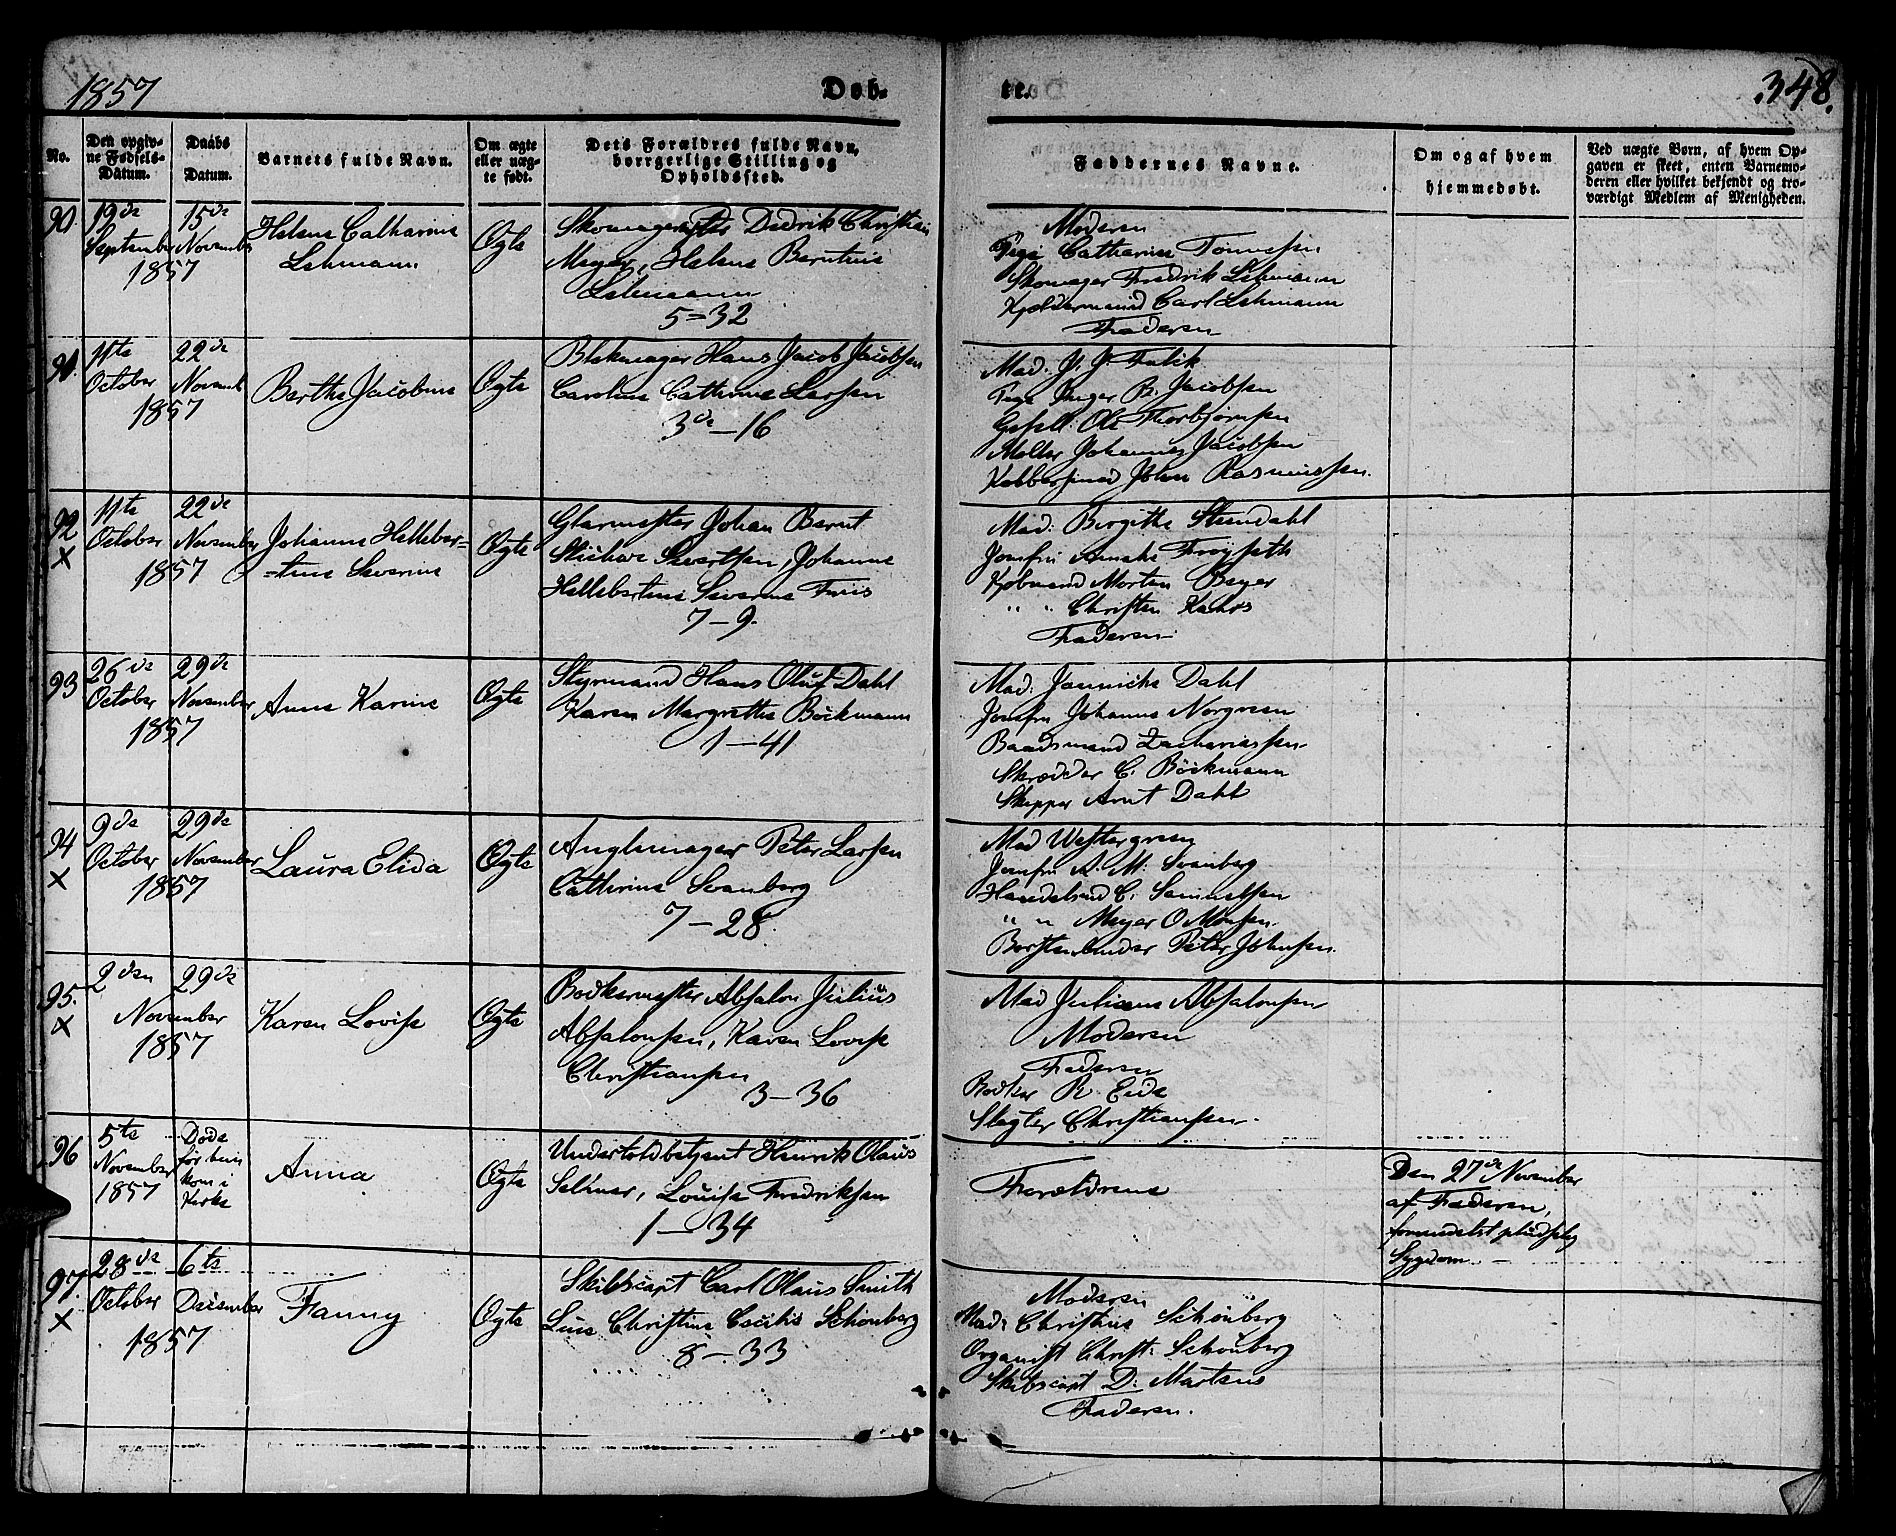 1857
Døb-
te.
348.
No.
Den opgiv-
ne Fødsels-
Datum.
Daabs
Datum.
Barnets fulde Navn.
Om ægte
eller uæg-
te født.
Dets Forældres fulde Navn,
borrgerlige Stilling og
Opholdssted.
Faddernes Navne.
Om og af hvem
hjemmedøbt.
Ved uægte Børn, af hvem Op-
gaven er skeet, enten Barnemo-
deren eller hvilket bekjendt og tro-
værdigt Medlem af Menigheden.
90.
19de
September
1857
15de
November
Helene Catharine
Lehmann
Ægte
Skomagermester Diedrik Christian
Meyer, Helene Berntine
Lehmann
5-32
Moderen
Pige Catharine Tønnesen
Skomager Fredrik Lehmann
Kjeldermand Carl Lehmann
Faderen
91.
11te
October
1857
22de
Novemb
Berthe Jacobine
Ægte
Blokmager Hans Jacob Jacobsen
Caroline Cathrine Larsen
3de-16
Mad. J. J. Falck
Pige Inger B. Jacobsen
Gesell. Ole Thorbjørnsen
Møller Johannes Jacobsen
Kobbersmed Johan Rasmussen.
92
X
11te
October
1857
22de
November
Johanne Helleber=
=tine Severine
Ægte
Glarmester Johan Bernt
Sivertsen, Johanne
Hellebertine Severine Friis
7-9.
Mad: Birgithe Steendahl
Jomfru Amalie Frøyseth
Kjøbmand Morten Beyer
" " Christen Kahrs
Faderen
93
26de
October
1857
29de
November
Anne Karine
Ægte
Styrmand Hans Oluf Dahl
Karen Margrethe Böckmann
1-41
Mad: Jannicke Dahl
Jomfru Johanne Norgreen
Baadsmand Zachariassen
Skrædder C. Böckmann
Skipper Arnt Dahl
94
X
9de
October
1857
29de
November
Laura Elida
Ægte
Anglemager Peter Larsen
Cathrine Svanberg
7-28.
Mad Westergreen
Jomfru A. M. Svanberg
Handelsmd C. Samuelsen
" " Meyer O Monsen
Børstenbinder Peter Johnsen.
95.
X
2den
November
1857
29de
Karen Lovise
Ægte
Bødkermester Absalon Julius
Absalonsen, Karen Lovise
Christiansen
3-36
Mad Juliane Absalonsen
Moderen
Faderen
Bødker R. Eide
Slagter Christiansen.
96
5te
November
1857
Døde
før hun
kom i
Kirke
Anna
Ægte
Undertoldbetjent Henrik Olaus
Selmer, Lovise Fredriksen
1-34
Forældrene
Den 27de November
af Faderen,
formedelst pludselig
Sygdom.
97.
X
28de
October
1857
6te
December
Fanny
Ægte
Skibscapt Carl Olaus Smith
Line Christine Cecilie Schönberg
8-33
Moderen
Mad: Christine Schönberg
Organist Christ: Schönberg
Skibscapt D. Martens
Faderen.